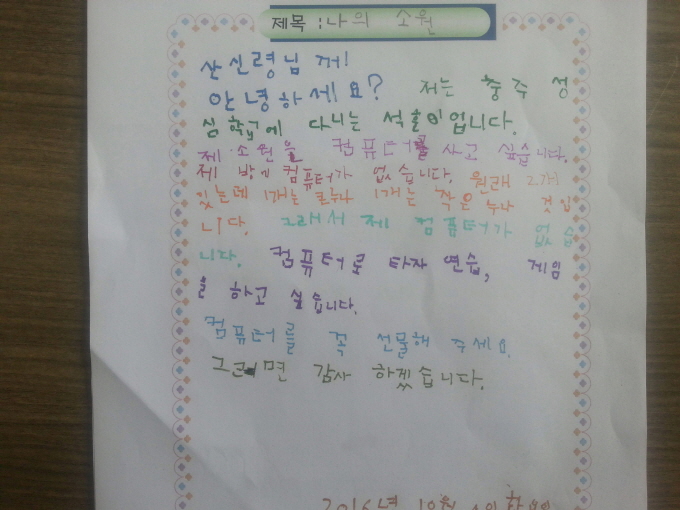 제목 : 나의 소원
산신령님 께
안녕하세요? 저는 충주 성
심학교에 다니는 석훈이입니다.
제 소원을 컴퓨터를 사고 싶습니다.
제 방에 컴퓨터가 없습니다. 원래 2개
있는데 1개는 큰누나 1개는 작은 누나 것입
니다. 그래서 제 컴퓨터가 없습
니다. 컴퓨터로 타자 연습, 게임
을 하고 싶습니다.
컴퓨터를 꼭 선물해 주세요.
그러면 감사 하겠습니다.
2016년 10월